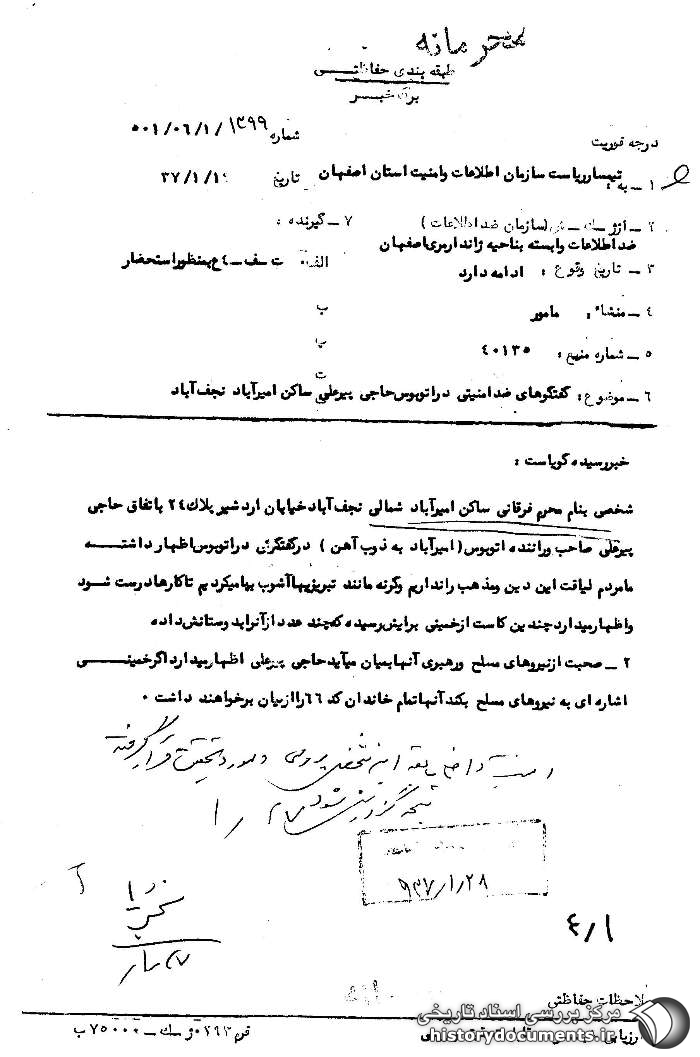 محرمانه
طبقه بندی حفاظتی
برگ خبر
درجه فوریت
شماره ۵۰۱/۰۶/۱/۱۳۹۹
۱ـ به: تیمسار ریاست سازمان اطلاعات و امنیت استان اصفهان
تاریخ
۲ـ از (سازمان ضد اطلاعات)
۷ـ گیرنده:
ضد اطلاعات وابسته بناحیه ژاندارمری اصفهان
۳ـ تاریخ وقوع: ادامه دارد
الف: ت ـ ف ـ ۴ع بمنظور استحضار
۴ـ منشاء: مامور
ب
۵ـ شماره منبع: ۴۰۱۳۵
پ
ت
۶ـ موضوع: گفتگوهای ضد امنیتی در اتوبوس حاجی پیرعلی ساکن امیرآباد نجف آباد
خبر رسیده گویاست:
شخصی بنام محرم فرقانی ساکن امیرآباد شمالی نجف آباد خیابان اردشیر پلاک ۲۴ باتفاق حاجی
پیرعلی صاحب و راننده اتوبوس (امیرآباد به ذوب آهن) در گفتگوئی در اتوبوس اظهار داشته
ما مردم لیاقت این دین و مذهب را نداریم وگرنه مانند تبریزیها آشوب بپا میکردیم تا کارها درست شود
و اظهار میدارد چندین کاست از خمینی برایش رسیده که چند عدد از آنرا بدوستانش داده
۲ـ صحبت از نیروهای مسلح و رهبری آنها بمیان میآید حاجی پیرعلی اظهار میدارد اگر خمینی
اشاره ای به نیروهای مسلح بکند آنها تمام خاندان کد ۶۶ را از میان برخواهند داشت ۰
امنیت داخلی سابقه این شخص بررسی و مورد تحقیق قرار گرفته
نتیجه گزارش شود
۹۳۷/۱/۲۸
۴/۱
ملاحظات حفاظتی
مرکز بررسی اسناد تاریخی
historydocuments.ir